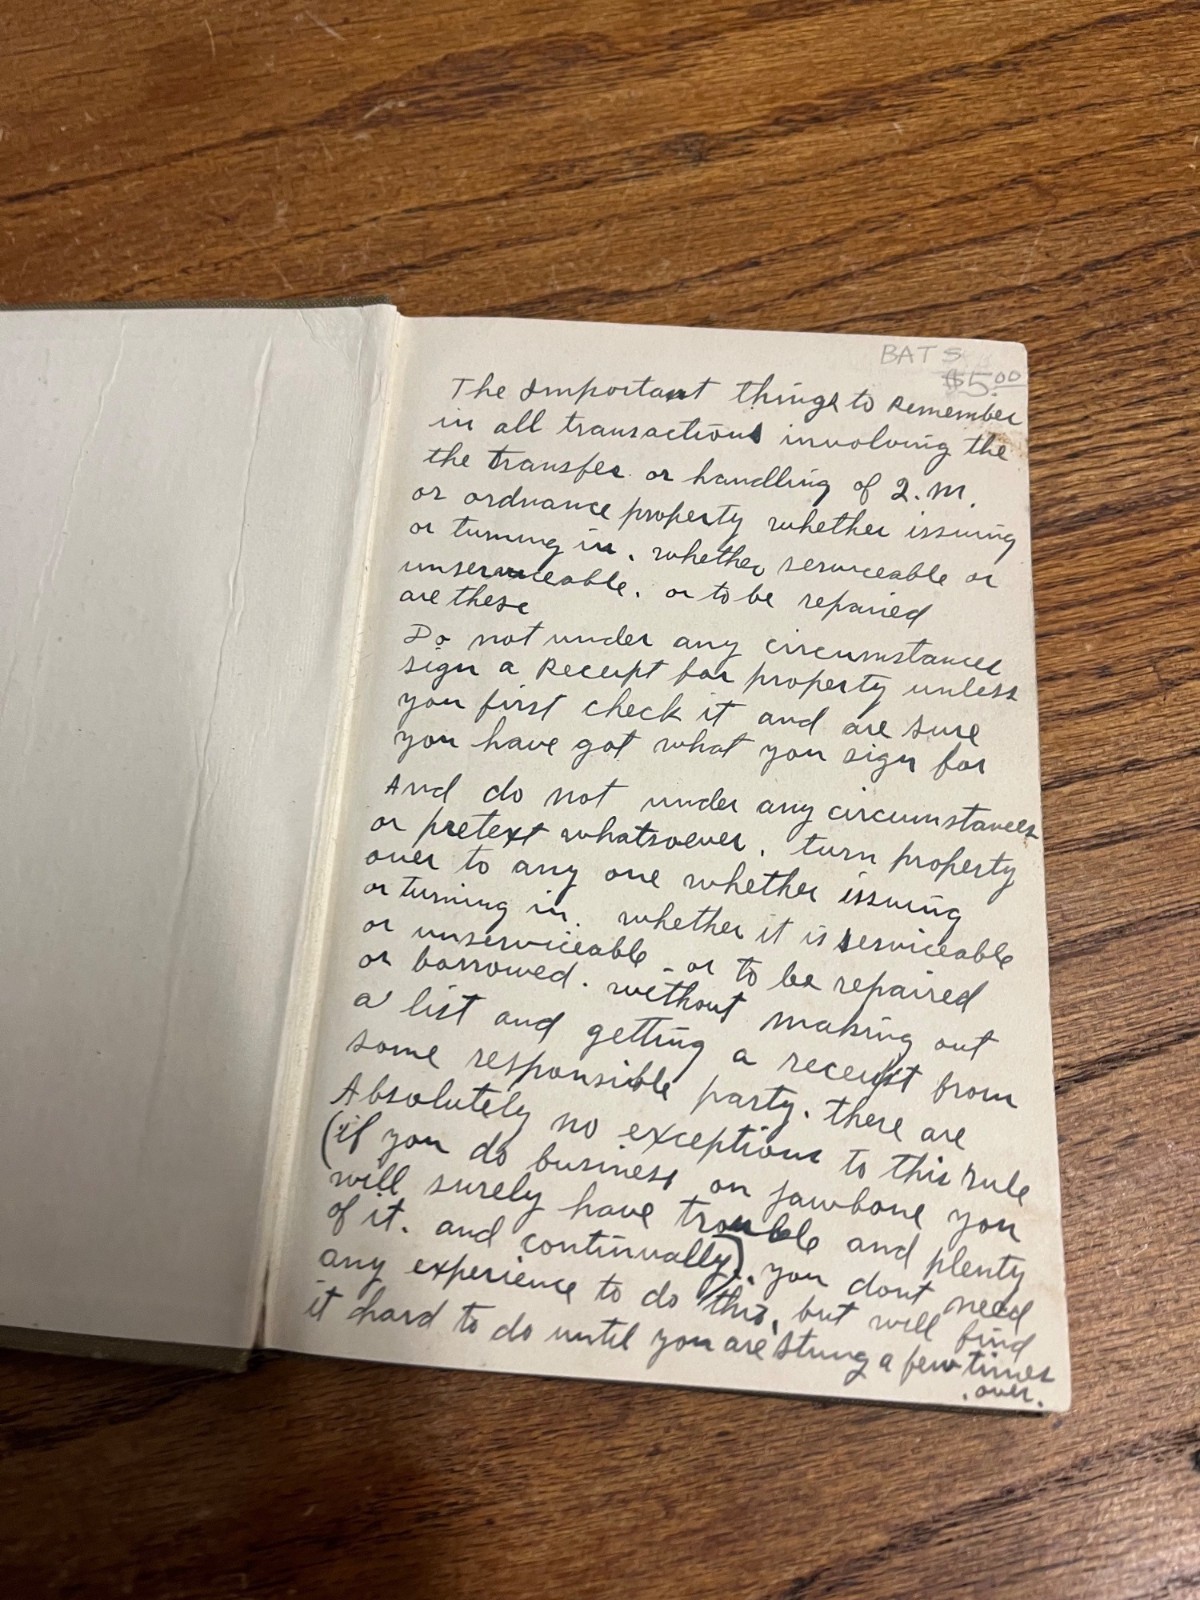 BATS
$5.00
The Important things to Remember
in all transactions involving the
the transfer or handling of Q.M.
or ordnance property whether issuing
or turning in. whether serviceable or
unserviceable. or to be repaired
are these
Do not under any circumstances
sign a Receipt for property unless
you first check it and are sure
you have got what you sign for
And do not under any circumstances
or pretext whatsoever. turn property
over to any one whether issuing
or turning in. whether it is serviceable
or unserviceable - or to be repaired
or borrowed. without making out
a list and getting a receipt from
some responsible party. there are
Absolutely no exceptions to this rule
(if you do business on jawbone you
will surely have trouble and plenty
of it. and continually). you dont need
any experience to do this, but will find
it hard to do until you are stung a few times
. over.